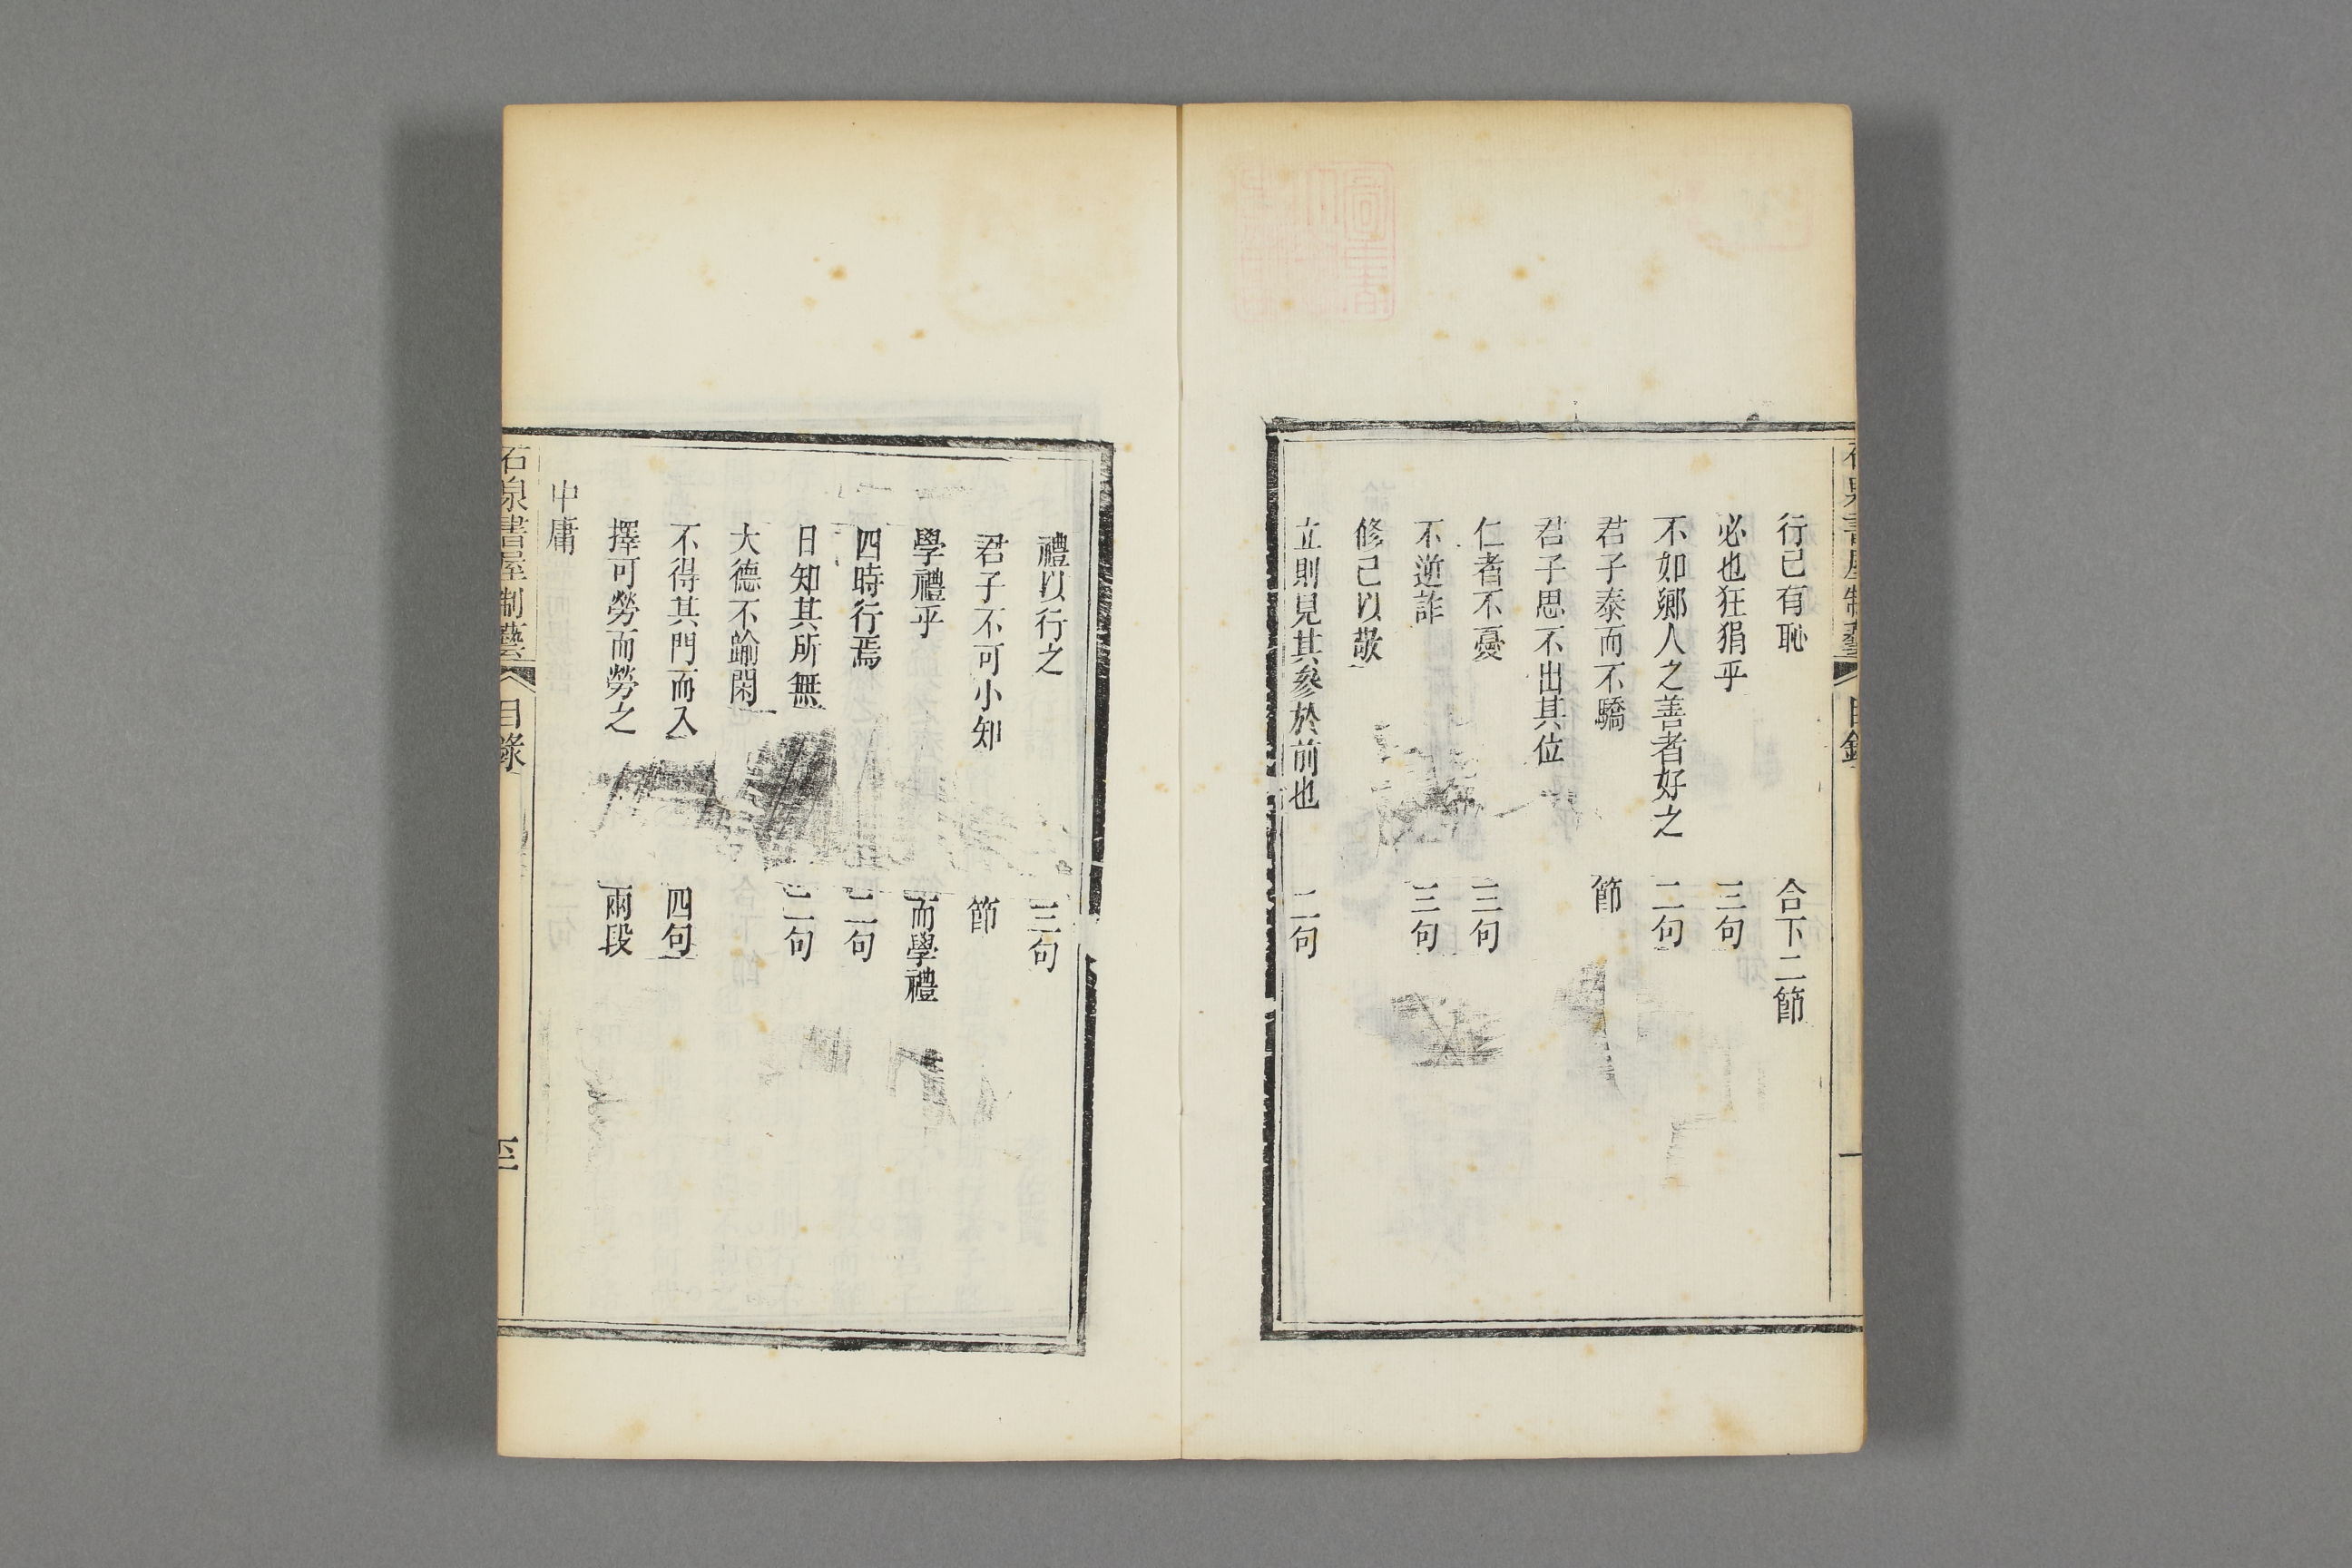 行己有恥 合下二節
必也狂狷乎 三句
不如鄉人之善者好之 二句
君子泰而不驕 節
君子思不出其位
仁者不憂 三句
不逆詐 三句
修己以敬
立則見其參於前也 二句
禮以行之 三句
君子不可小知 節
學禮乎 而學禮
四時行焉 二句
日知其所無 二句
大德不踰閑
不得其門而入 四句
擇可勞而勞之 兩段
中庸
石泉書屋制藝 目錄